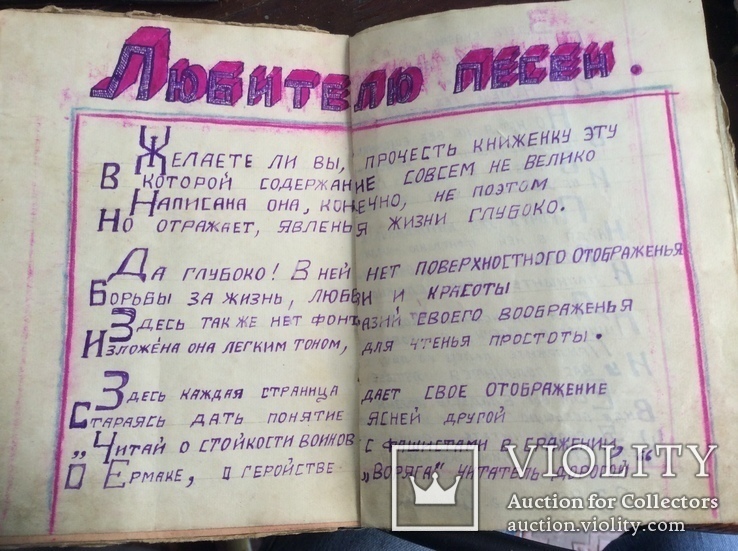 Любителю песен.
Желаете ли вы, прочесть книженку эту
В которой содержание совсем не велико
Написана она, конечно, не поэтом
Но отражает, явленья жизни глубоко.
Да глубоко! В ней нет поверхностного отображенья
Борьбы за жизнь, любви и красоты
Здесь также нет фонтазий своего воображенья
Изложена она легким тоном, для чтенья простоты.
Здесь каждая страница дает свое отображение
Стараясь дать понятие ясней другой
„Читай о стойкости воинов с фашистами в сражении,“
О Ермаке, о геройстве „Варяга“ читатель дорогой
VIOLITY
Auction for Collectors
auction.violity.com